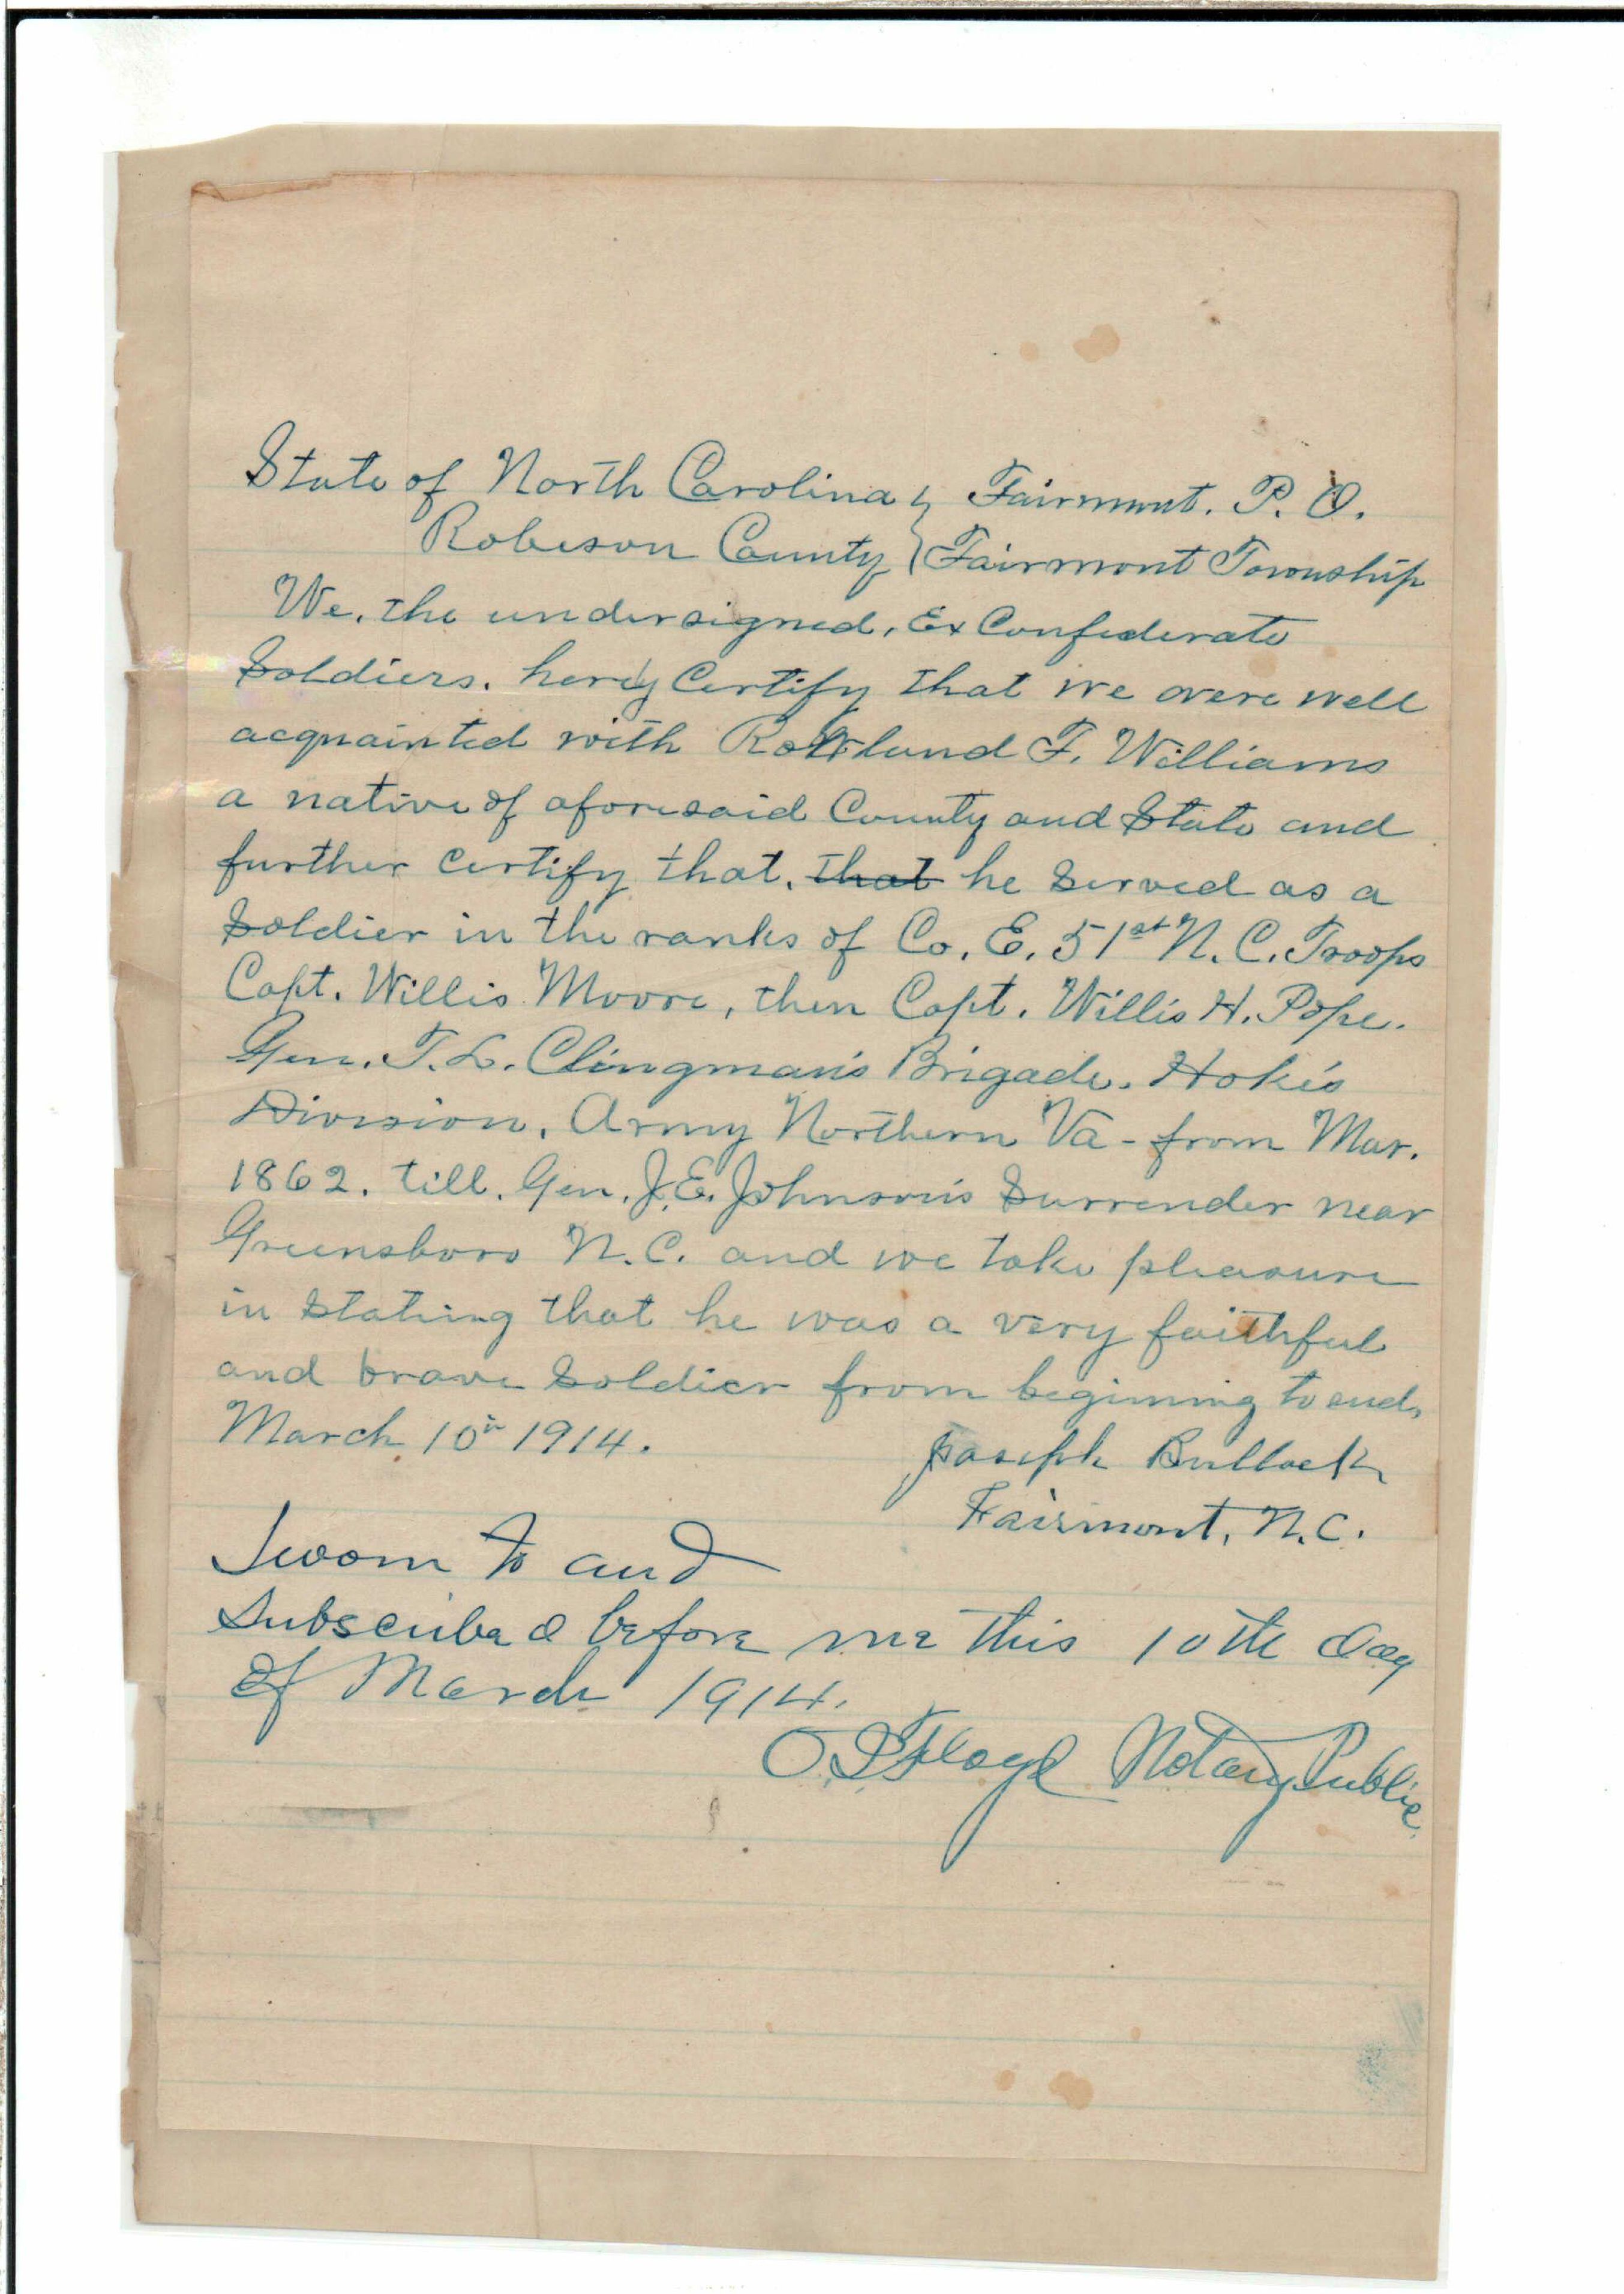 State of North Carolina } Fairmont. P. O.
Robeson County } Fairmont Township
We, the undersigned, Ex Confederate
Soldiers. hereby Certify that we were well
acquainted with Rowland F. Williams
a native of aforesaid County and State and
further certify that, that he served as a
Soldier in the ranks of Co. E. 51st N. C. Troops
Capt. Willis Moore, then Capt. Willis H. Pope.
Gen. T. L. Clingman's Brigade. Hoke's
Division, Army Northern Va - from Mar.
1862. till. Gen. J. E. Johnson's Surrender near
Greensboro N. C. and we take pleasure
in stating that he was a very faithful
and brave Soldier from begining to end,
March 10th 1914.
Joseph Bullock
Fairmont, N. C.
Sworn to and
Subscribed before me this 10th day
of March 1914.
Floyd Notary Public